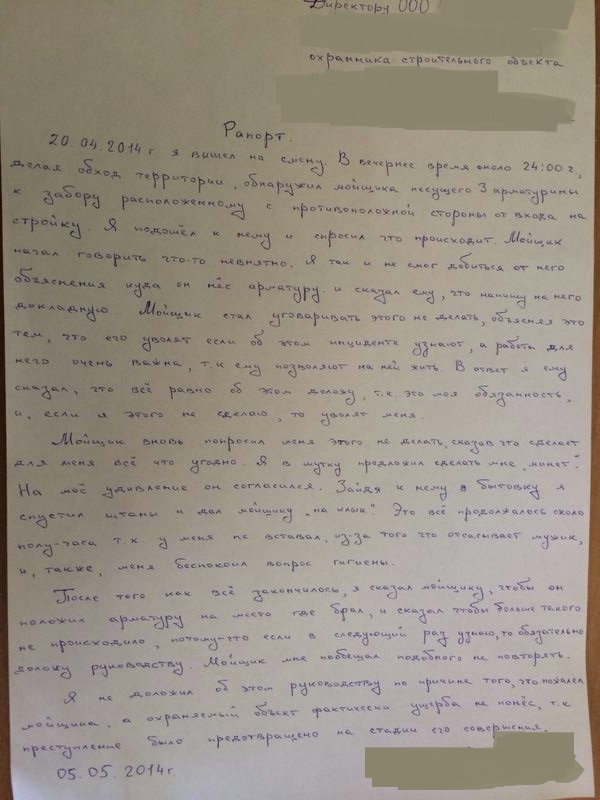 Директору ООО
охранника строительного объекта
Рапорт.
20.04.2014 г. я вышел на смену. В вечернее время около 24:00 г,
делая обход территории, обнаружил мойщика несущего 3 арматурины
к забору расположенному с противоположной стороны от входа на
стройку. Я подошёл к нему и спросил что происходит. Мойщик
начал говорить что-то невнятно. Я так и не смог добиться от него
объяснения куда он нёс арматуру. и сказал ему, что напишу на него
докладную. Мойщик стал уговаривать этого не делать, объясняя это
тем, что его уволят если об этом инциденте узнают, а работа для
него очень важна, т.к. ему позволяют на ней жить. В ответ я ему
сказал, что всё равно об этом доложу, т.к. это моя обязанность,
и, если я этого не сделаю, то уволят меня.
Мойщик вновь попросил меня этого не делать, сказав что сделает
для меня всё что угодно. Я в шутку предложил сделать мне „минет".
На моё удивление он согласился. Зайдя к нему в бытовку я
спустил штаны и дал мойщику „на клык". Это всё продолжалось около
полу-часа т.к. у меня не вставал, из-за того что отсасывает мужик,
и, также, меня беспокоил вопрос гигиены.
После того как всё закончилось, я сказал мойщику, чтобы он
положил арматуру на место где брал, и сказал чтобы больше такого
не происходило, потому-что если в следующий раз узнаю, то обязательно
доложу руководству. Мойщик мне пообещал подобного не повторять.
Я не доложил об этом руководству по причине того, что пожалел
мойщика, а охраняемый объект фактически ущерба не понёс, т.к
преступление было предотвращено на стадии его совершения.
05.05.2014 г.